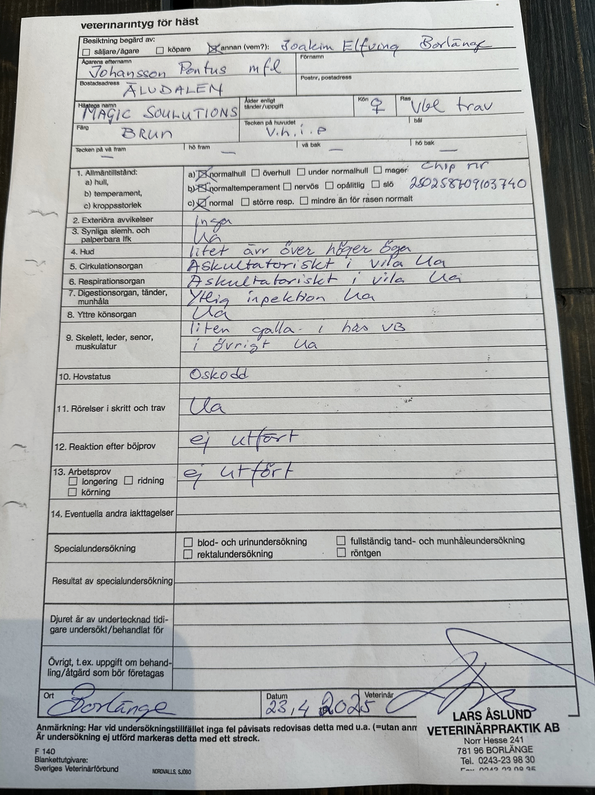 veterinärintyg för häst
Besiktning begärd av:
säljare/ägare köpare annan (vem?): Joakim Elfving Borlänge
Ägarens efternamn Förnamn
Johansson Pontus mfl
Bostadsadress Postnr, postadress
ÄLUDALEN
Hästens namn Ålder enligt tänder/uppgift Kön Ras
MAGIC SOULUTIONS ♀ vbl trav
Färg Tecken på huvudet
BRUN V.h.i.p
Tecken på vä fram hö fram vä bak hö bak
— — — —
1. Allmäntillstånd: a) normalhull överhull under normalhull mager Chip nr
a) hull, b) normaltemperament nervös opålitlig slö 250258709103740
b) temperament,
c) kroppsstorlek c) normal större resp. mindre än för rasen normalt
2. Exteriöra avvikelser Inga
3. Synliga slemh. och palperbara lfk Ua
4. Hud litet ärr över höger öga
5. Cirkulationsorgan Askultatoriskt i vila Ua
6. Respirationsorgan Askultatoriskt i vila Ua
7. Digestionsorgan, tänder, munhåla Ytlig inpektion Ua
8. Yttre könsorgan Ua
9. Skelett, leder, senor, liten galla i has VB
muskulatur i övrigt Ua
10. Hovstatus Oskodd
11. Rörelser i skritt och trav Ua
12. Reaktion efter böjprov ej utfört
13. Arbetsprov ej utfört
longering ridning
körning
14. Eventuella andra iakttagelser
Specialundersökning blod- och urinundersökning fullständig tand- och munhåleundersökning
rektalundersökning röntgen
Resultat av specialundersökning
Djuret är av undertecknad tidi-
gare undersökt/behandlat för
Övrigt, t.ex. uppgift om behand-
ling/åtgärd som bör företagas
Ort Datum Veterinär
Borlänge 23,4 2025
Anmärkning: Har vid undersökningstillfället inga fel påvisats redovisas detta med u.a. (=utan anm
Är undersökning ej utförd markeras detta med ett streck.
F 140
Blankettutgivare:
Sveriges Veterinärförbund NORDVALLS, SJÖBO
LARS ÅSLUND
VETERINÄRPRAKTIK AB
Norr Hesse 241
781 96 BORLÄNGE
Tel. 0243-23 98 30